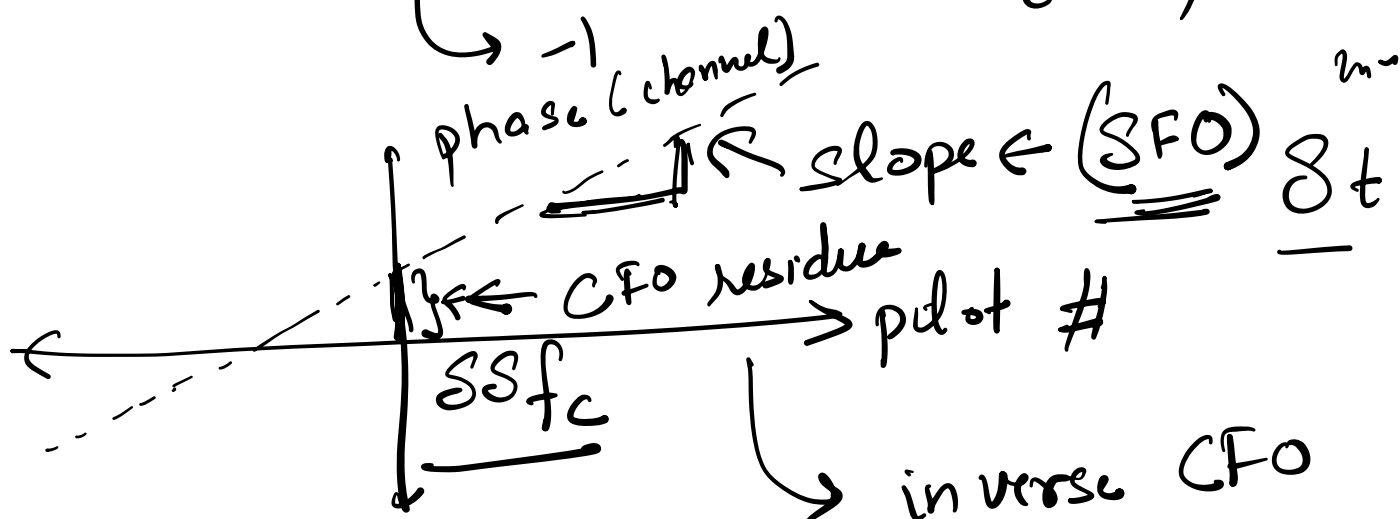 -1
phase (channel)
slope ← (SFO) δt
CFO residue
pilot #
δδfc
inverse CFO